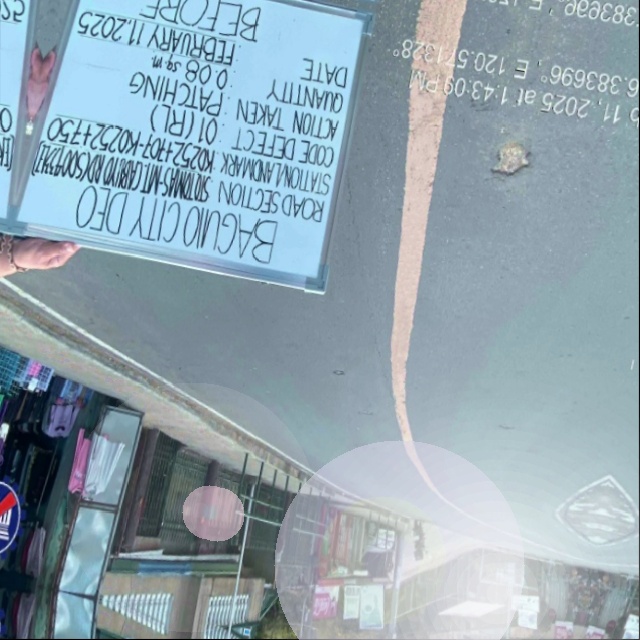 BAGUIO CITY DEO
ROAD SECTION
STATION/LNDMARK K0252+701-K0252+750
CODE DEFECT : 01 (RL)
ACTION TAKEN : PATCHING
QUANTITY : 0.08 sq.m
DATE : FEBRUARY 11, 2025
BEFORE
11, 2025 at 1:43:09 PM
6.383696°, E 120.571328°